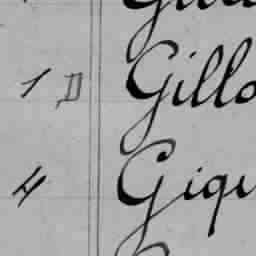 1 D Gillo
4 Giqu